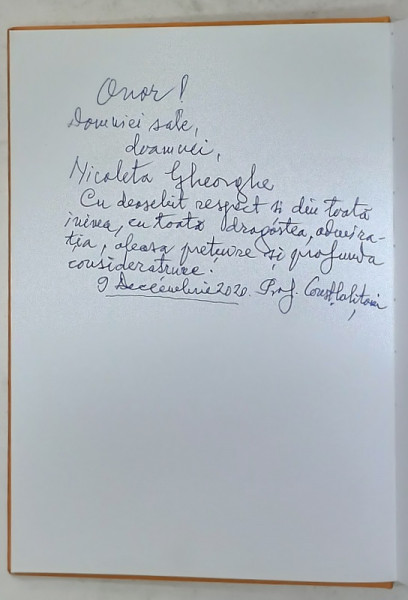 Onor!
Domniei sale,
doamnei,
Nicoleta Gheorghe
Cu deosebit respect si din toată
inima, cu toată dragostea, admira-
ția, aleasa prețuire și profunda
considerațiune.
9 Decembrie 2020. Prof.